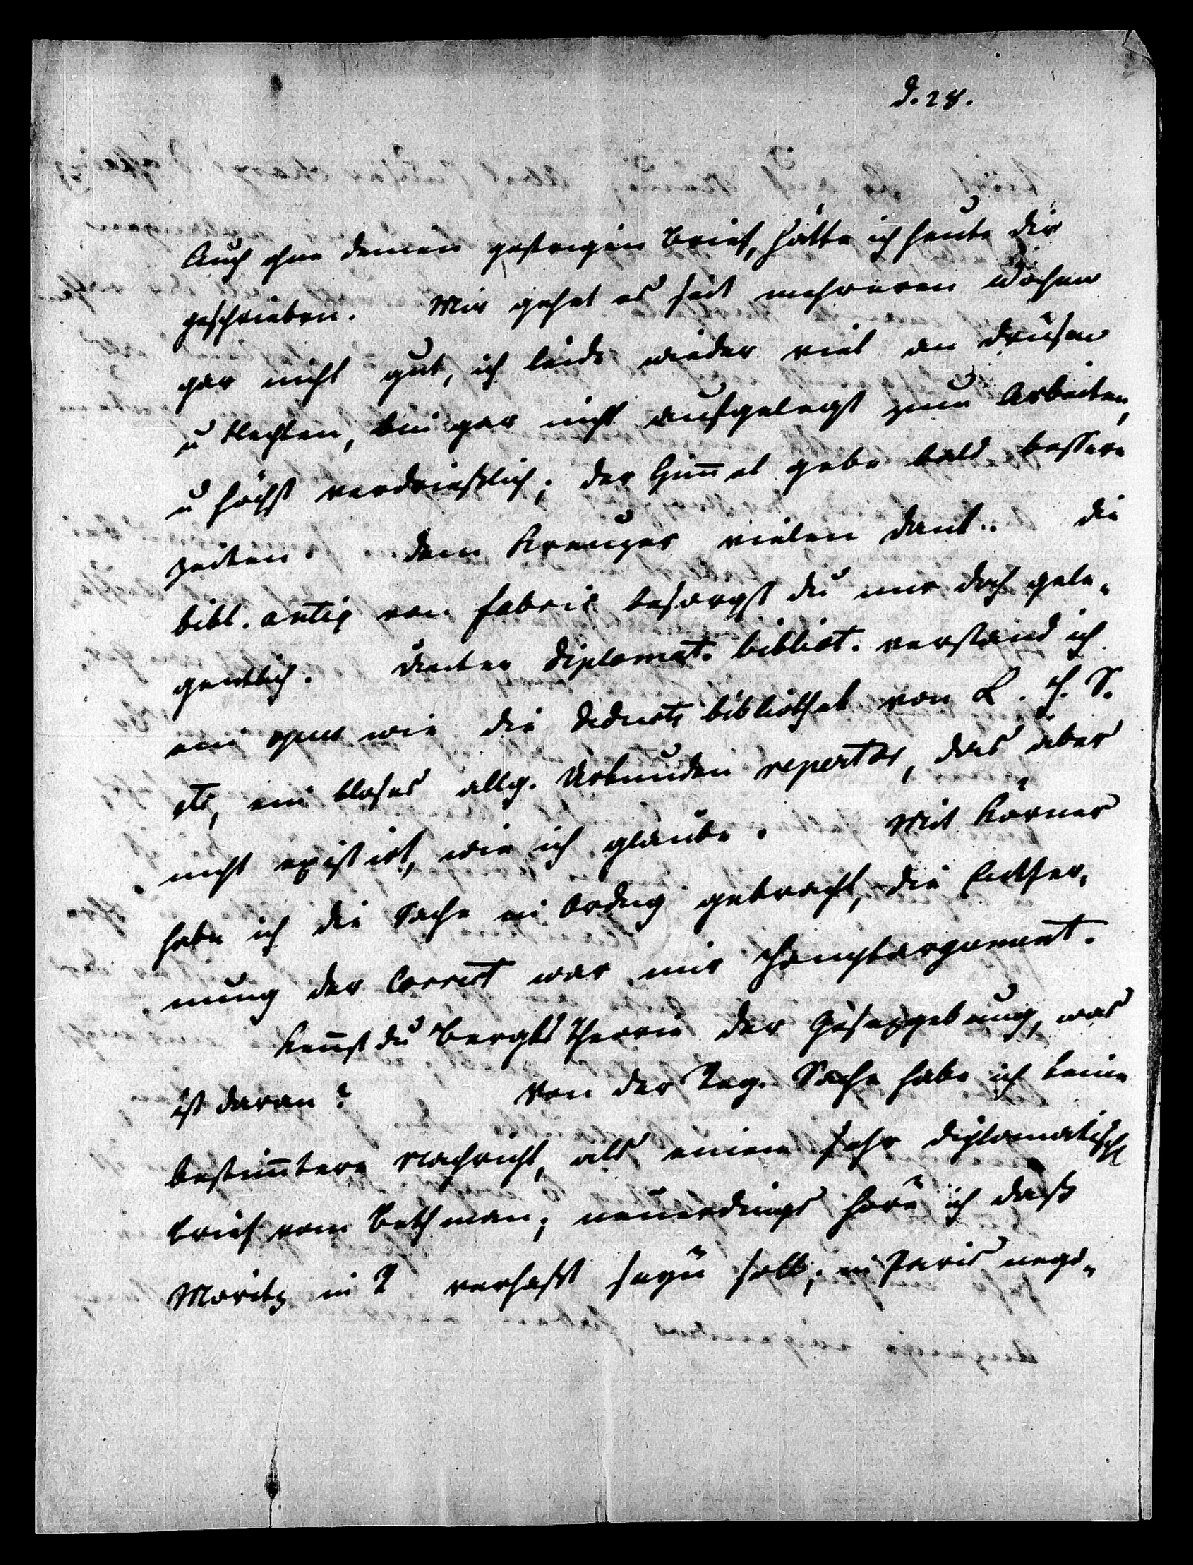 d. 28.
Auch ohne deinen gestrigen Brief, hätte ich heute dir
geschrieben. Mir gehet es seit mehreren Wochen
gar nicht gut, ich leide wieder viel an Drüsen
u Flechten, bin gar nicht aufgelegt zum Arbeiten,
u höchst verdrießlich; der Him̄el gebe bald bessere
Zeiten. Dem Kreuzer vielen Dank.. die
bibl. antiq von Fabric besorgst du mir doch gele-
gentlich. Unter diplomat. bibliot. verstand ich
ein opus wie die Deducts bibliothek von
etc, ein bloses allg. Urkunden repertor, das aber
nicht existirt, wie ich glaube. Mit Körner
habe ich die Sache in Ordnug gebracht, die Entfer-
nung der Correct war mir Hauptargument.
Ken̄st du Bergks Theorie der Gesezgebung, was
ist daran? Von der Sache habe ich keine
bestim̄tere Nachricht, als einen sehr diplomatisch
Brief vom Bethman; neuerdings höre ich daß
Moritz in verhaßt seyn soll; in Paris nego-